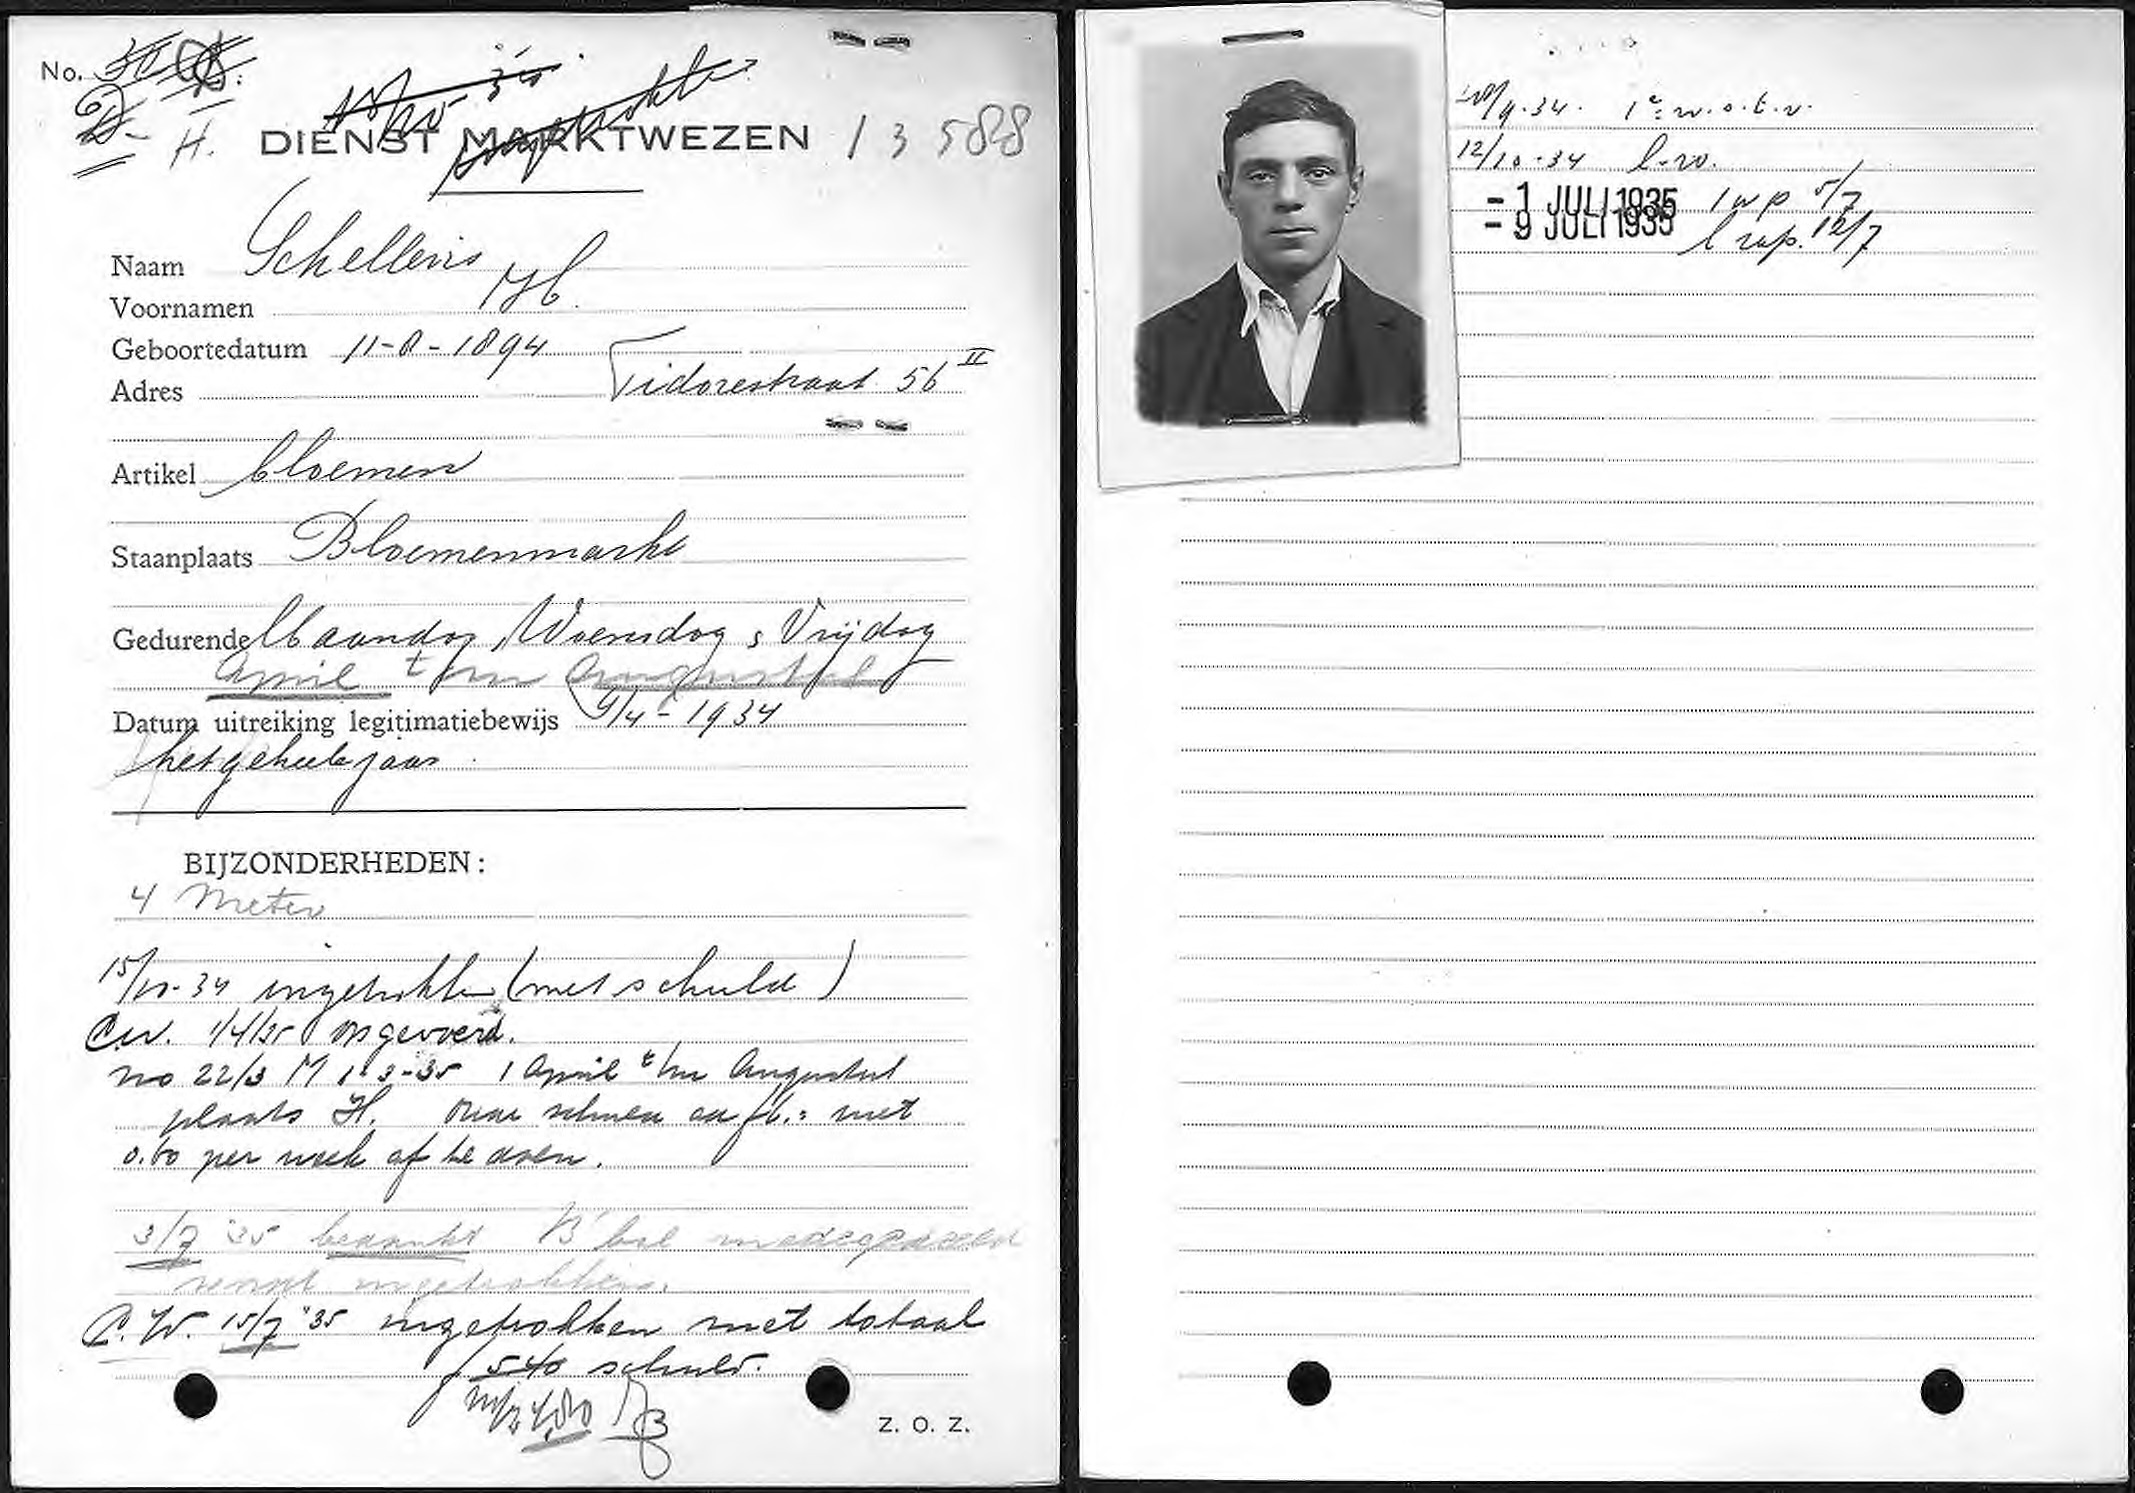 No.
D.
H.
DIENST MARKTWEZEN 13588
Naam Schellevis
Voornamen
Geboortedatum 11-8-1894
Adres Tidorestraat 56 II
Artikel bloemen
Staanplaats Bloemenmarkt
Gedurende Maandag, Woensdag, Vrijdag
April t/m Augustus
Datum uitreiking legitimatiebewijs 9/4-1934
het geheele jaar
BIJZONDERHEDEN:
4 Meter
15/10-34 ingetrokken (met schuld)
C.W. 1/4/35
no 22/3 M 1 April t/m Augustus
plaats H. Oude schuld met
0.60 per week af te doen.
3/7 '35 bedankt
ingetrokken.
C.W. 15/7 '35 ingetrokken met totaal
f 5.40 schuld.
Z. O. Z.
/9-34. 1e w.o.b.v.
12/10-34
- 1 JULI 1935 1 w p 5/7
- 9 JULI 1935 12/7